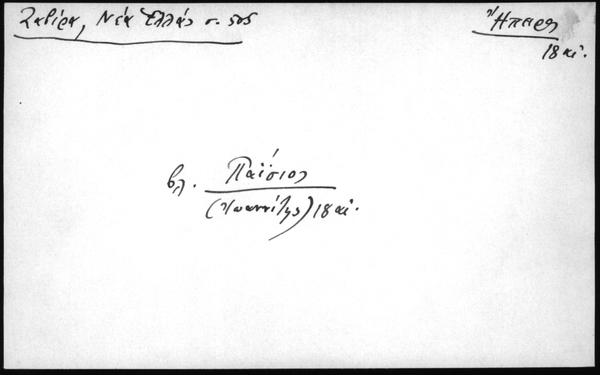 Ζαβίρα, Νέα Ἑλλάς σ. 505
Ἤπειρος
18 αἰ.
βλ. Παΐσιος
(Ἰωαννίτης) 18 αἰ.